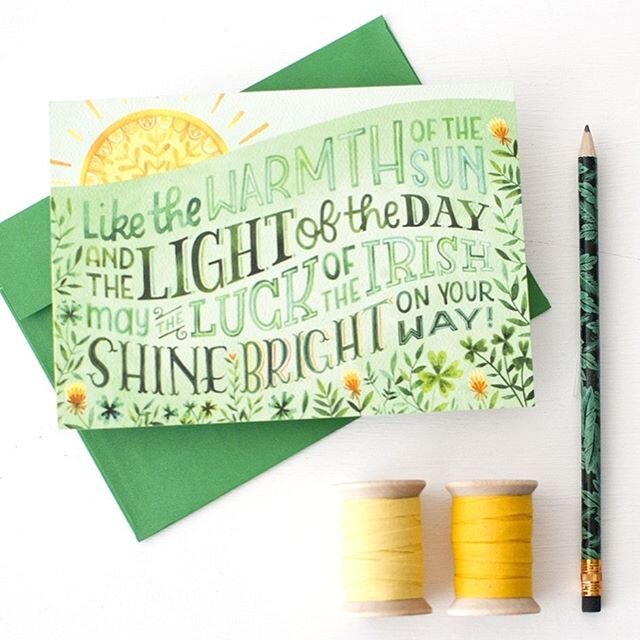 Like the WARMTH OF THE SUN
AND THE LIGHT of the DAY
may THE LUCK OF THE IRISH
SHINE BRIGHT ON YOUR WAY!